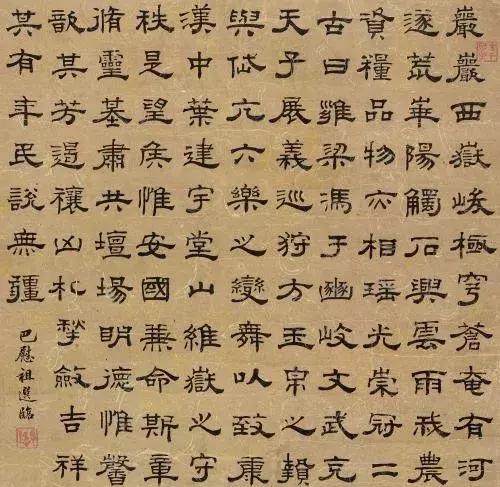 巖巖西嶽峻極穹蒼奄有河
遂荒崋陽觸石興雲雨我農
資糧品物亦相瑶光崇冠二
古曰雍梁馮于豳岐文武克
天子展義巡狩方玉帛之贄
與岱亢六樂之變舞以致康
漢中葉建宇堂山維嶽之守
秩是望侯惟安國兼命斯章
脩靈基肅共壇場明德惟馨
歆其芳遏禳凶札揫斂吉祥
其有年民說無疆
巴慰祖選臨